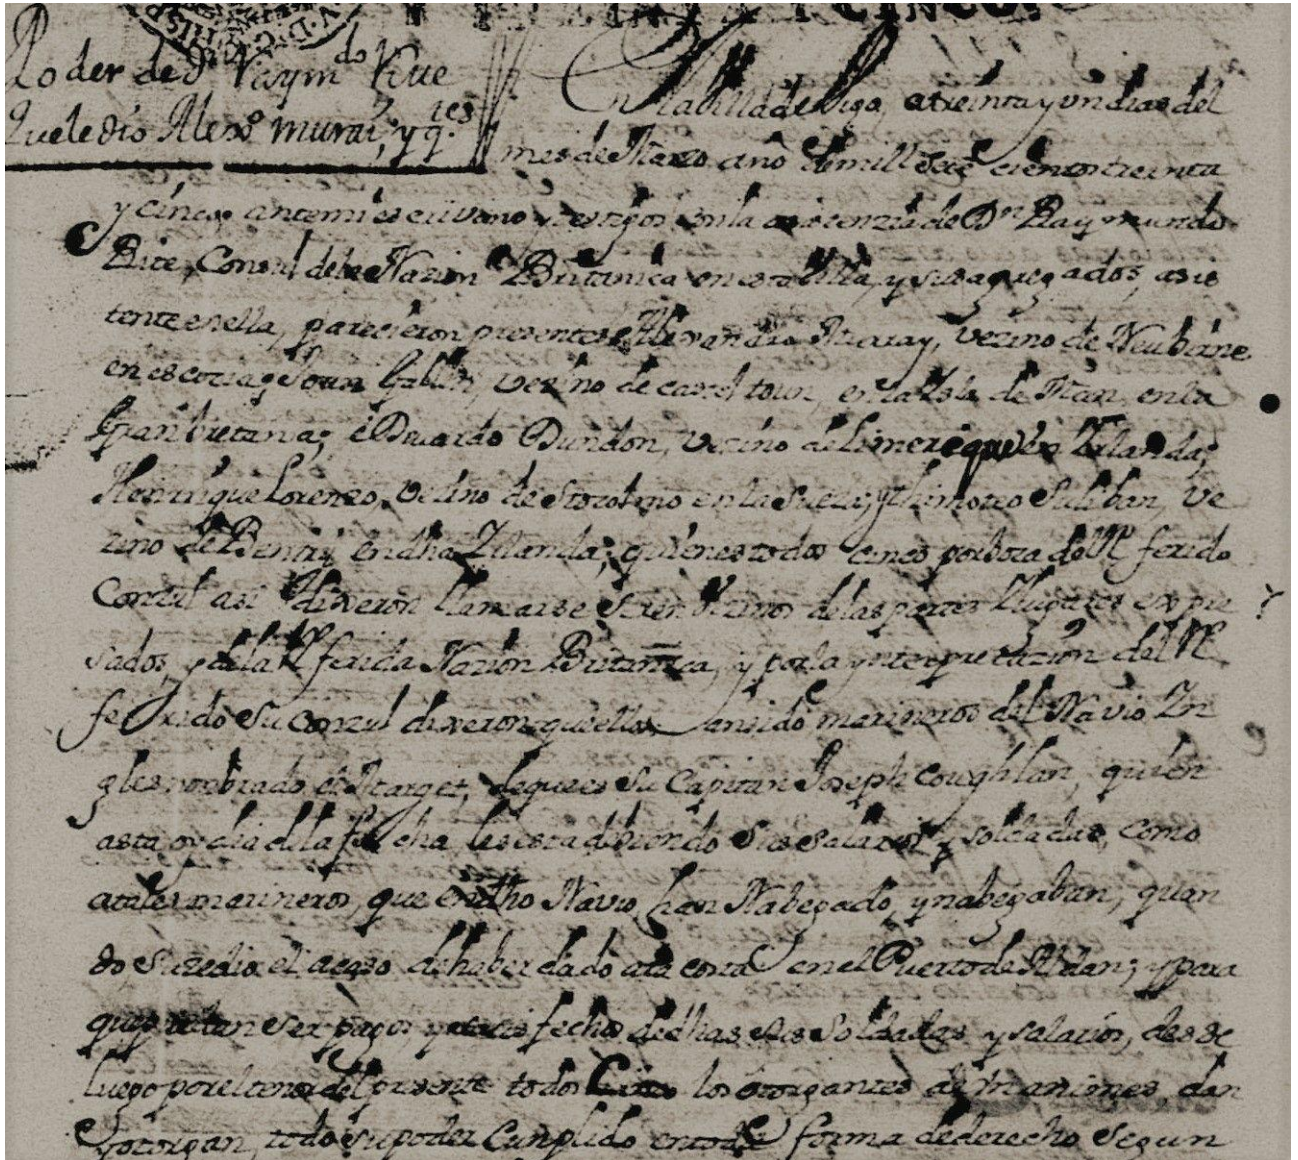 Y CINCO.
Poder de Dn Raymdo Rice
Que le dio Alexo. Murai, y qes.
En la Villa de Vigo, a treinta y un dias del
mes de Marzo año de mill Sete cientos treinta
y cinco; ante mi escrivano y testigos con la asistenzia de Dn Raymundo
Rice, Consul de la Nazion Britanica en esta Villa, y sus agregados, asis
tente en ella, parecieron presentes Alexandro Muray, vezino de Neubirne
en escozia; Soun vezino de casel toun, en la Isla de Man, en la
Gran bretaña; eDuardo Dundon, vezino de Limerique en Irlanda;
Henrrique Lorenzo, vezino de Stocolmo en la Suezia, y thimoteo Suliban, ve
zino de Bentri, en dha Irlanda; quienes todos cinco por boca del Re ferido
Consul asi dixeron llamarse y ser vezinos de las partes y lugares expre
sados, y de la Re ferida Nazion Britanica, y por la ynterpretazion del Re
ferido Su Conzul dixeron que ellos an sido marineros del Navio In
gles nombrado el Marget, de que es Su Capitan Joseph Coughlan, quien
asta oy dia de la fecha les esta debiendo Sus Salarios y soldadas, como
a tales marineros, que en dho Navio, han Nabegado, y nabegaban, quan
do Suzedio el acaso de haber dado a la costa en el Puerto de Aldan; y para
que puedan ser pagos, y satisfechos de dhas sus Soldadas y salarios, desde
luego por el tenor del presente todos Cinco los otorgantes de mancomun, dan
y otorgan, todo su poder Cumplido en toda forma de derecho Segun